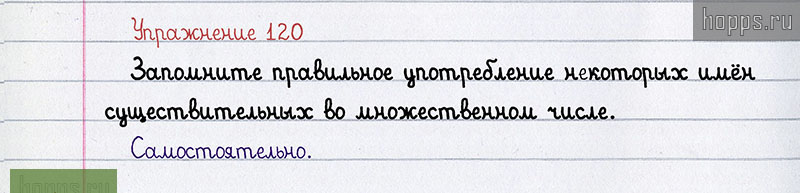 hopps.ru
Упражнение 120
Запомните правильное употребление некоторых имён
существительных во множественном числе.
Самостоятельно.
hopps.ru